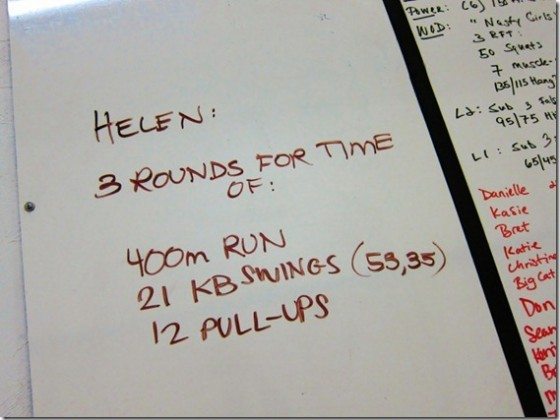 HELEN:
3 ROUNDS FOR TIME
OF:
400m RUN
21 KB SWINGS (53,35)
12 PULL-UPS
POWER: (6)
WOD: "Nasty Girls
3 RFT:
50 Squats
7 muscle-
135/115 Hang
L2: Sub 3
95/75
L1: Sub 3
65/45
Danielle
Kasie
Bret
Katie
Christine
Big Cat
Don
Sean